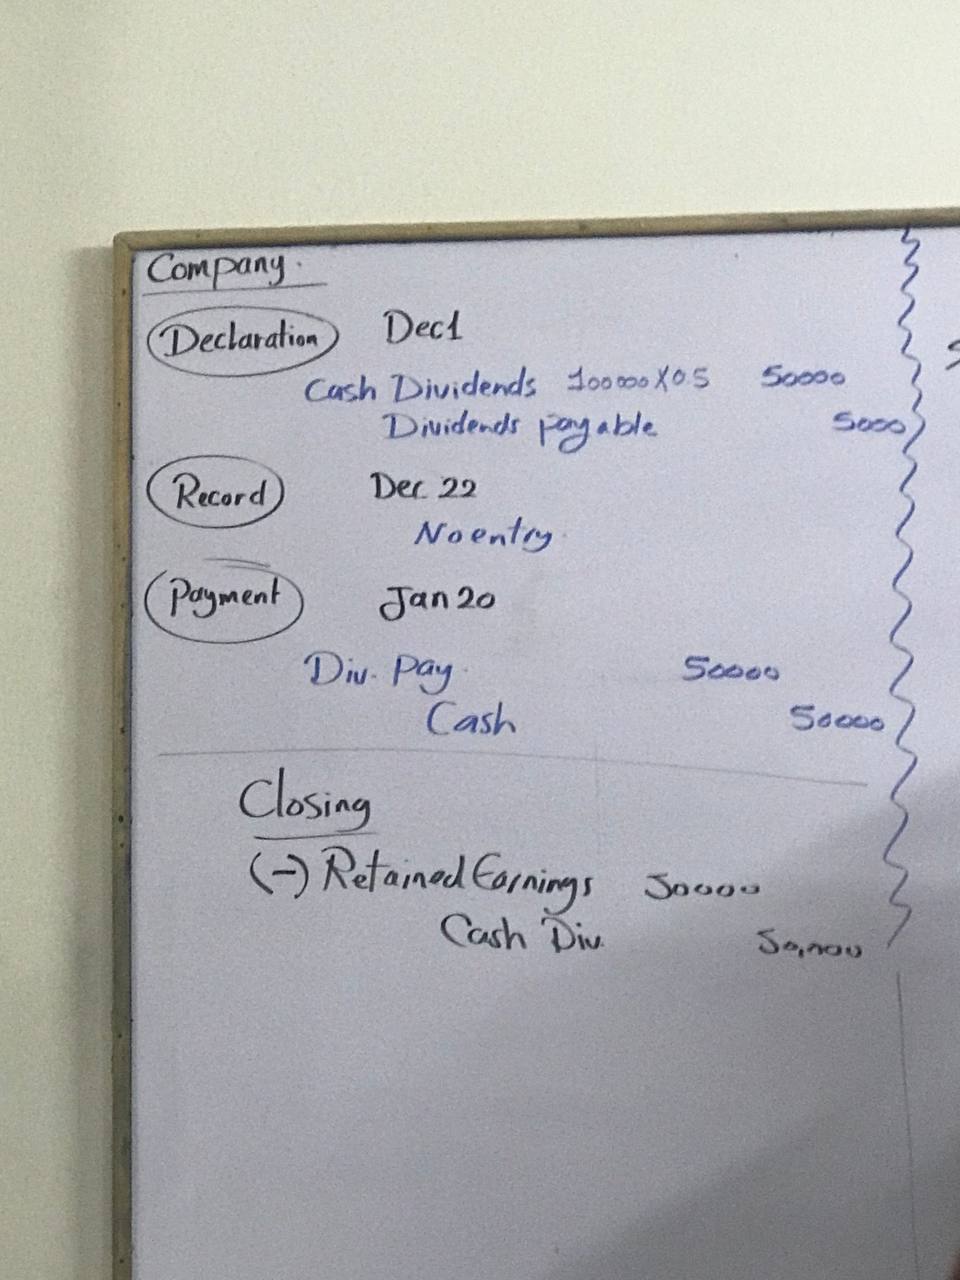 Company.
Declaration Dec1
Cash Dividends 100000X0.5 50000
Dividends payable 5000
Record Dec 22
No entry
Payment Jan 20
Div. Pay. 50000
Cash 50000
Closing
(-) Retained Earnings 50000
Cash Div. 50,000